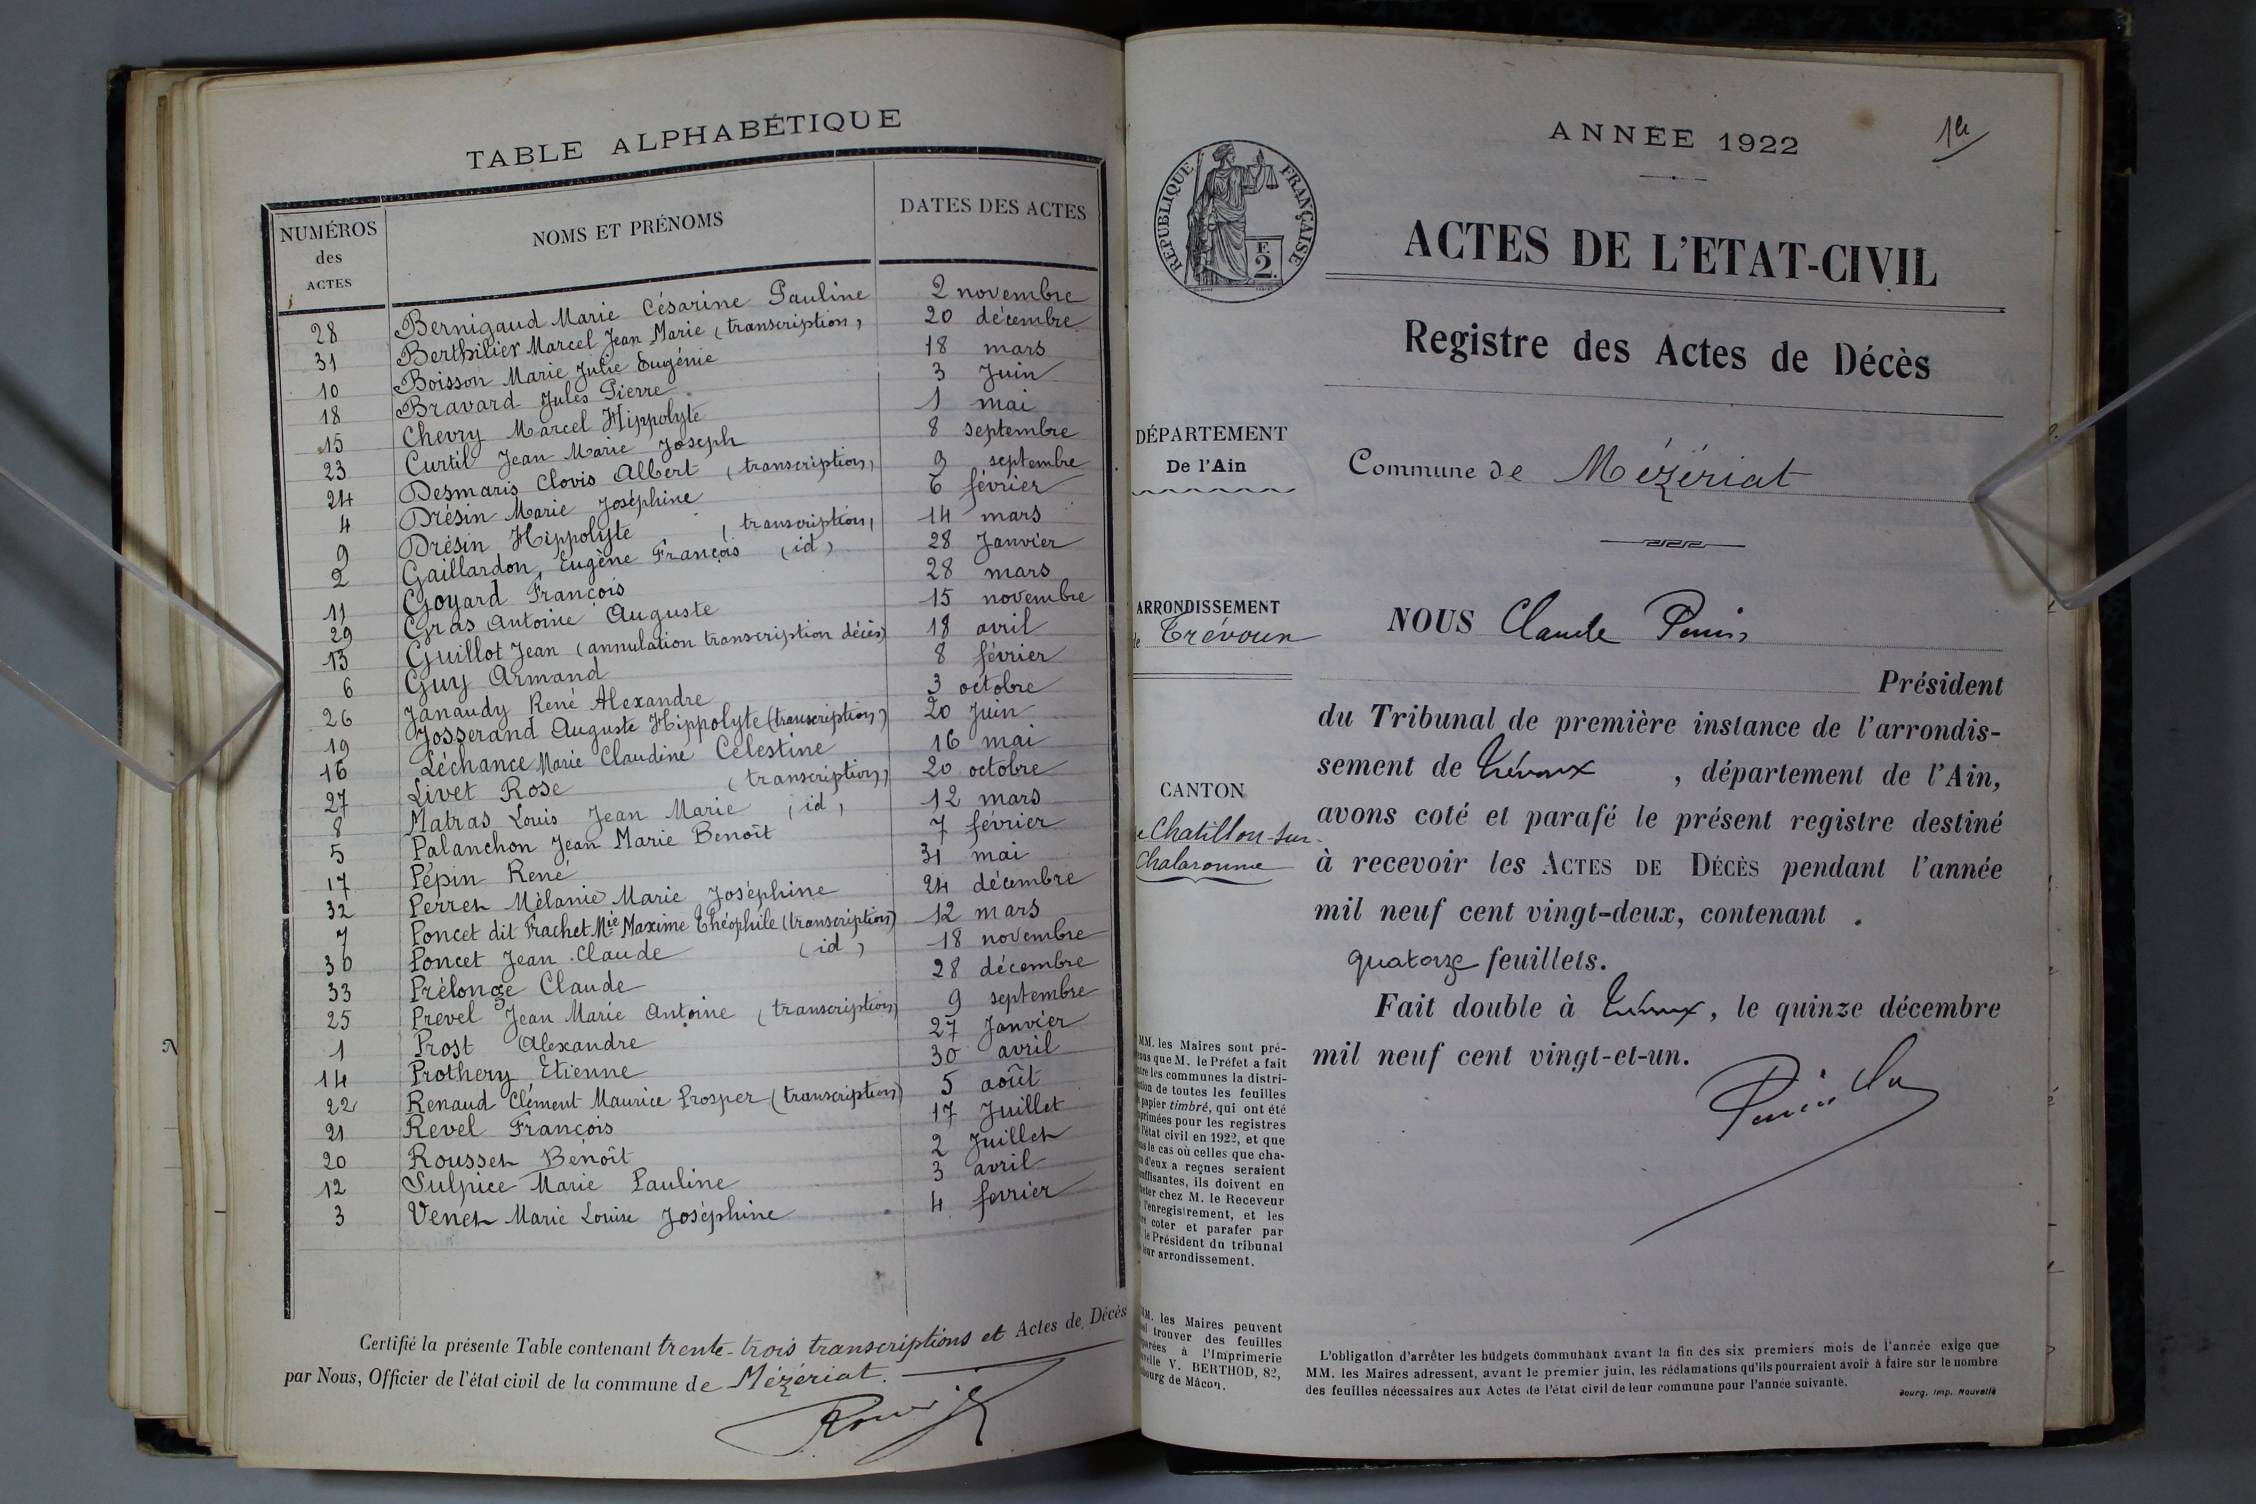 TABLE ALPHABÉTIQUE
NUMÉROS des ACTES
NOMS ET PRÉNOMS
DATES DES ACTES
28 Bernigaud Marie Césarine Pauline 2 novembre
31 Berthilier Marcel Jean Marie (transcription) 20 décembre
10 Boisson Marie Julie Eugénie 18 mars
18 Bravard Jules Pierre 3 Juin
15 Chevry Marcel Hippolyte 1 mai
23 Curtil Jean Marie Joseph 8 septembre
24 Desmaris Clovis Albert (transcription) 9 septembre
4 Drésin Marie Joséphine 6 février
9 Drésin Hippolyte (transcription) 14 mars
2 Gaillardon Eugène François (id) 28 Janvier
11 Goyard François 28 mars
29 Gras Antoine Auguste 15 novembre
13 Guillot Jean (annulation transcription décès) 18 avril
6 Guy Armand 8 février
26 Janaudy René Alexandre 3 octobre
19 Josserand Auguste Hippolyte (transcription) 20 Juin
16 Léchance Marie Claudine Célestine 16 mai
27 Livet Rose (transcription) 20 octobre
8 Matras Louis Jean Marie (id) 12 mars
5 Palanchon Jean Marie Benoît 7 février
17 Pépin René 31 mai
32 Perret Mélanie Marie Joséphine 24 décembre
7 Poncet dit Frachet Mie Maxime Théophile (transcription) 12 mars
30 Poncet Jean Claude (id) 18 novembre
33 Prélonge Claude 28 décembre
25 Prevel Jean Marie Antoine (transcription) 9 septembre
1 Prost Alexandre 27 Janvier
14 Prothery Etienne 30 avril
22 Renaud Clément Maurice Prosper (transcription) 5 août
21 Revel François 17 Juillet
20 Rousset Benoît 2 Juillet
12 Sulpice Marie Pauline 3 avril
3 Venet Marie Louise Joséphine 4 fevrier
Certifié la présente Table contenant trente-trois transcriptions et Actes de Décès
par Nous, Officier de l'état civil de la commune de Mézériat.
ANNÉE 1922
1er
RÉPUBLIQUE FRANÇAISE
F.
2.
ACTES DE L'ETAT-CIVIL
Registre des Actes de Décès
DÉPARTEMENT
De l'Ain
Commune de Mézériat
ARRONDISSEMENT
Trévoux
NOUS Claude
Président
du Tribunal de première instance de l'arrondis-
sement de Trévoux, département de l'Ain,
CANTON
Chatillon-sur-
Chalaronne
avons coté et parafé le présent registre destiné
à recevoir les ACTES DE DÉCÈS pendant l'année
mil neuf cent vingt-deux, contenant
quatorze feuillets.
Fait double à Trévoux, le quinze décembre
mil neuf cent vingt-et-un.
MM. les Maires sont pré-
que M. le Préfet a fait
les communes la distri-
de toutes les feuilles
papier timbré, qui ont été
pour les registres
l'état civil en 1922, et que
le cas où celles que cha-
d'eux a reçues seraient
ils doivent en
chez M. le Receveur
l'enregistrement, et les
coter et parafer par
le Président du tribunal
arrondissement.
MM. les Maires peuvent
trouver des feuilles
à l'Imprimerie
V. BERTHOD, 82,
de Mâcon.
L'obligation d'arrêter les budgets communaux avant la fin des six premiers mois de l'année exige que
MM. les Maires adressent, avant le premier juin, les réclamations qu'ils pourraient avoir à faire sur le nombre
des feuilles nécessaires aux Actes de l'état civil de leur commune pour l'année suivante.
Bourg. Imp. Nouvelle